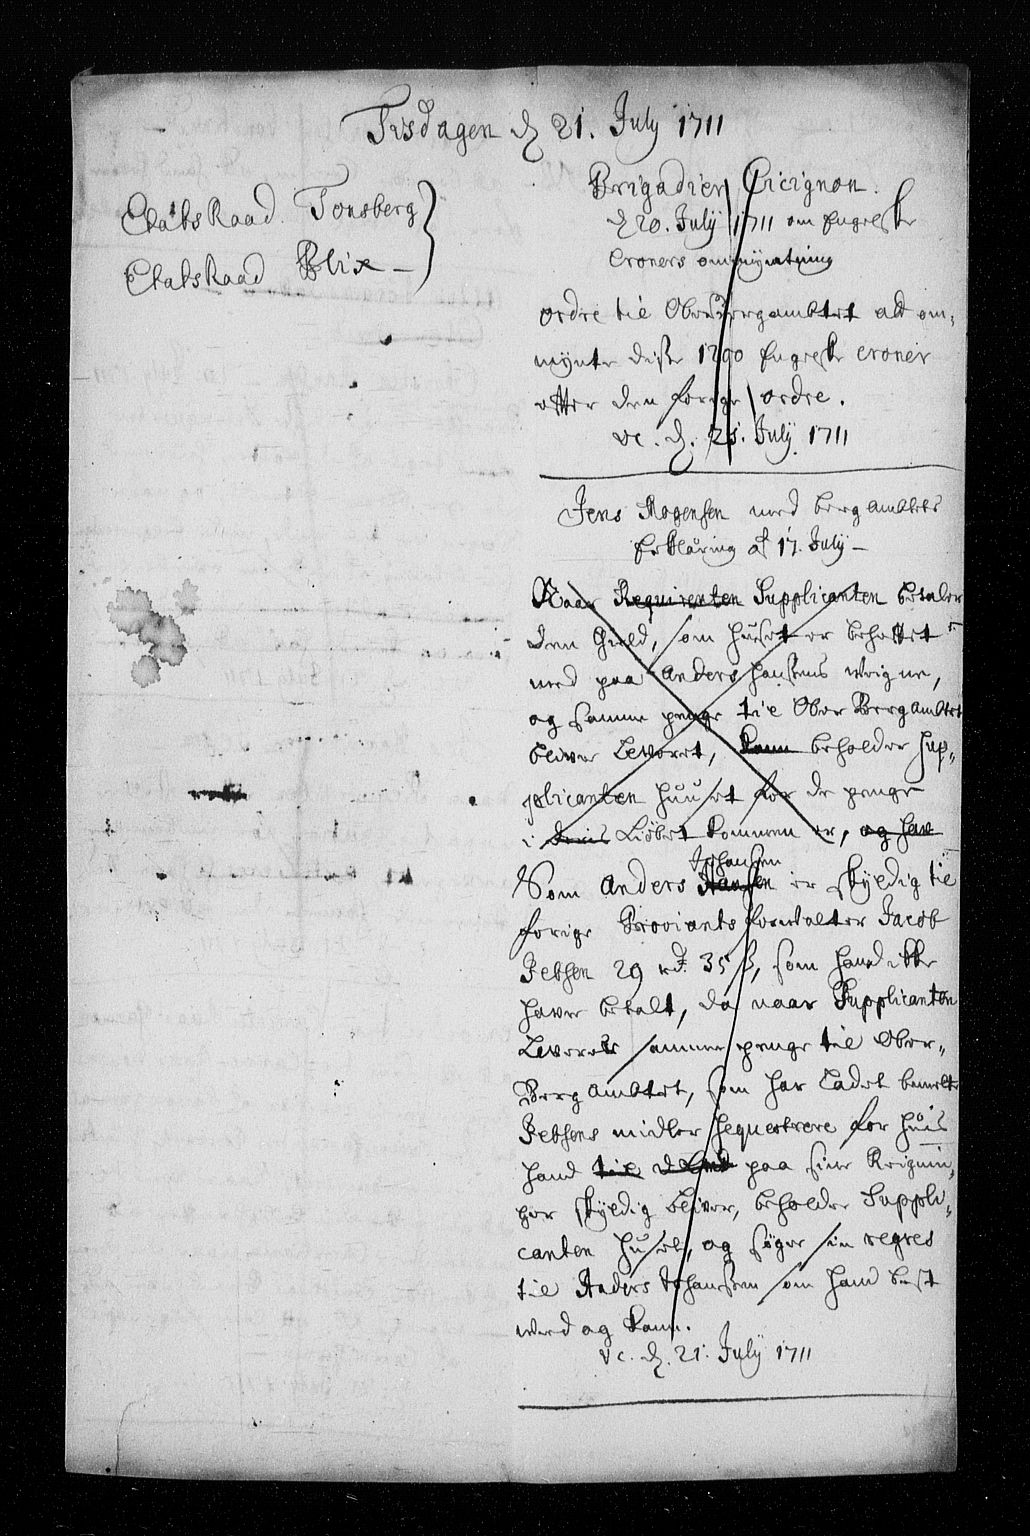 Tisdagen d. 21. July 1711
Etats Raad Tonsberg
Etats Raad Blix
Brigadier Cicignon.
d. 20. July 1711 om Engelske
Croners ommyntning
ordre til OberBergambtet at om-
mynte disse 1290 Engelske croner
efter den forige ordre.
vc. d. 21. July 1711
Jens Mogensen med bergambtets
Erklæring af 17. July
Naar Requirenten Supplicanten betaler
den Gield, som huuset er behæftet
med paa Anders Hansens veigne,
og samme penge til Ober Bergambtet
bliver Leveret, kann beholder Sup-
plicanten huuset for de penge
i deris Liøbet kommen er, og hav
Som Anders Hansen Johansen er skyldig til
forige Proviants forvalter Jacob
Jebsen 29 rd. 35 ß, som hand ikke
haver betalt, da naar Supplicanten
Leverer samme penge til Ober-
Bergambtet, som har Ladet bemelte
Jebsens midler sequestrere for huis
hand til paa sine Reignin-
ger skyldig bliver, beholder Suppli-
canten huset, og søger sin regres
til Anders Johansen som hand best
veed og kann.
vc. d. 21. July 1711